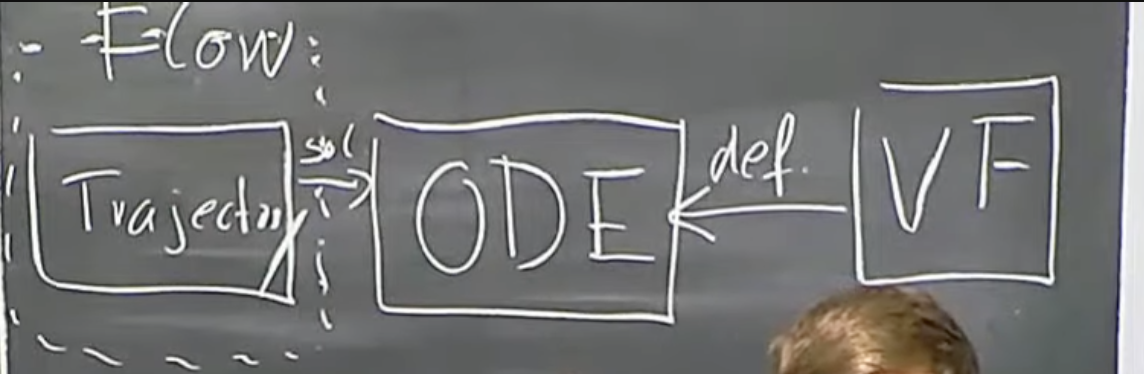 Flow:
Trajectory
sol
ODE
def.
VF